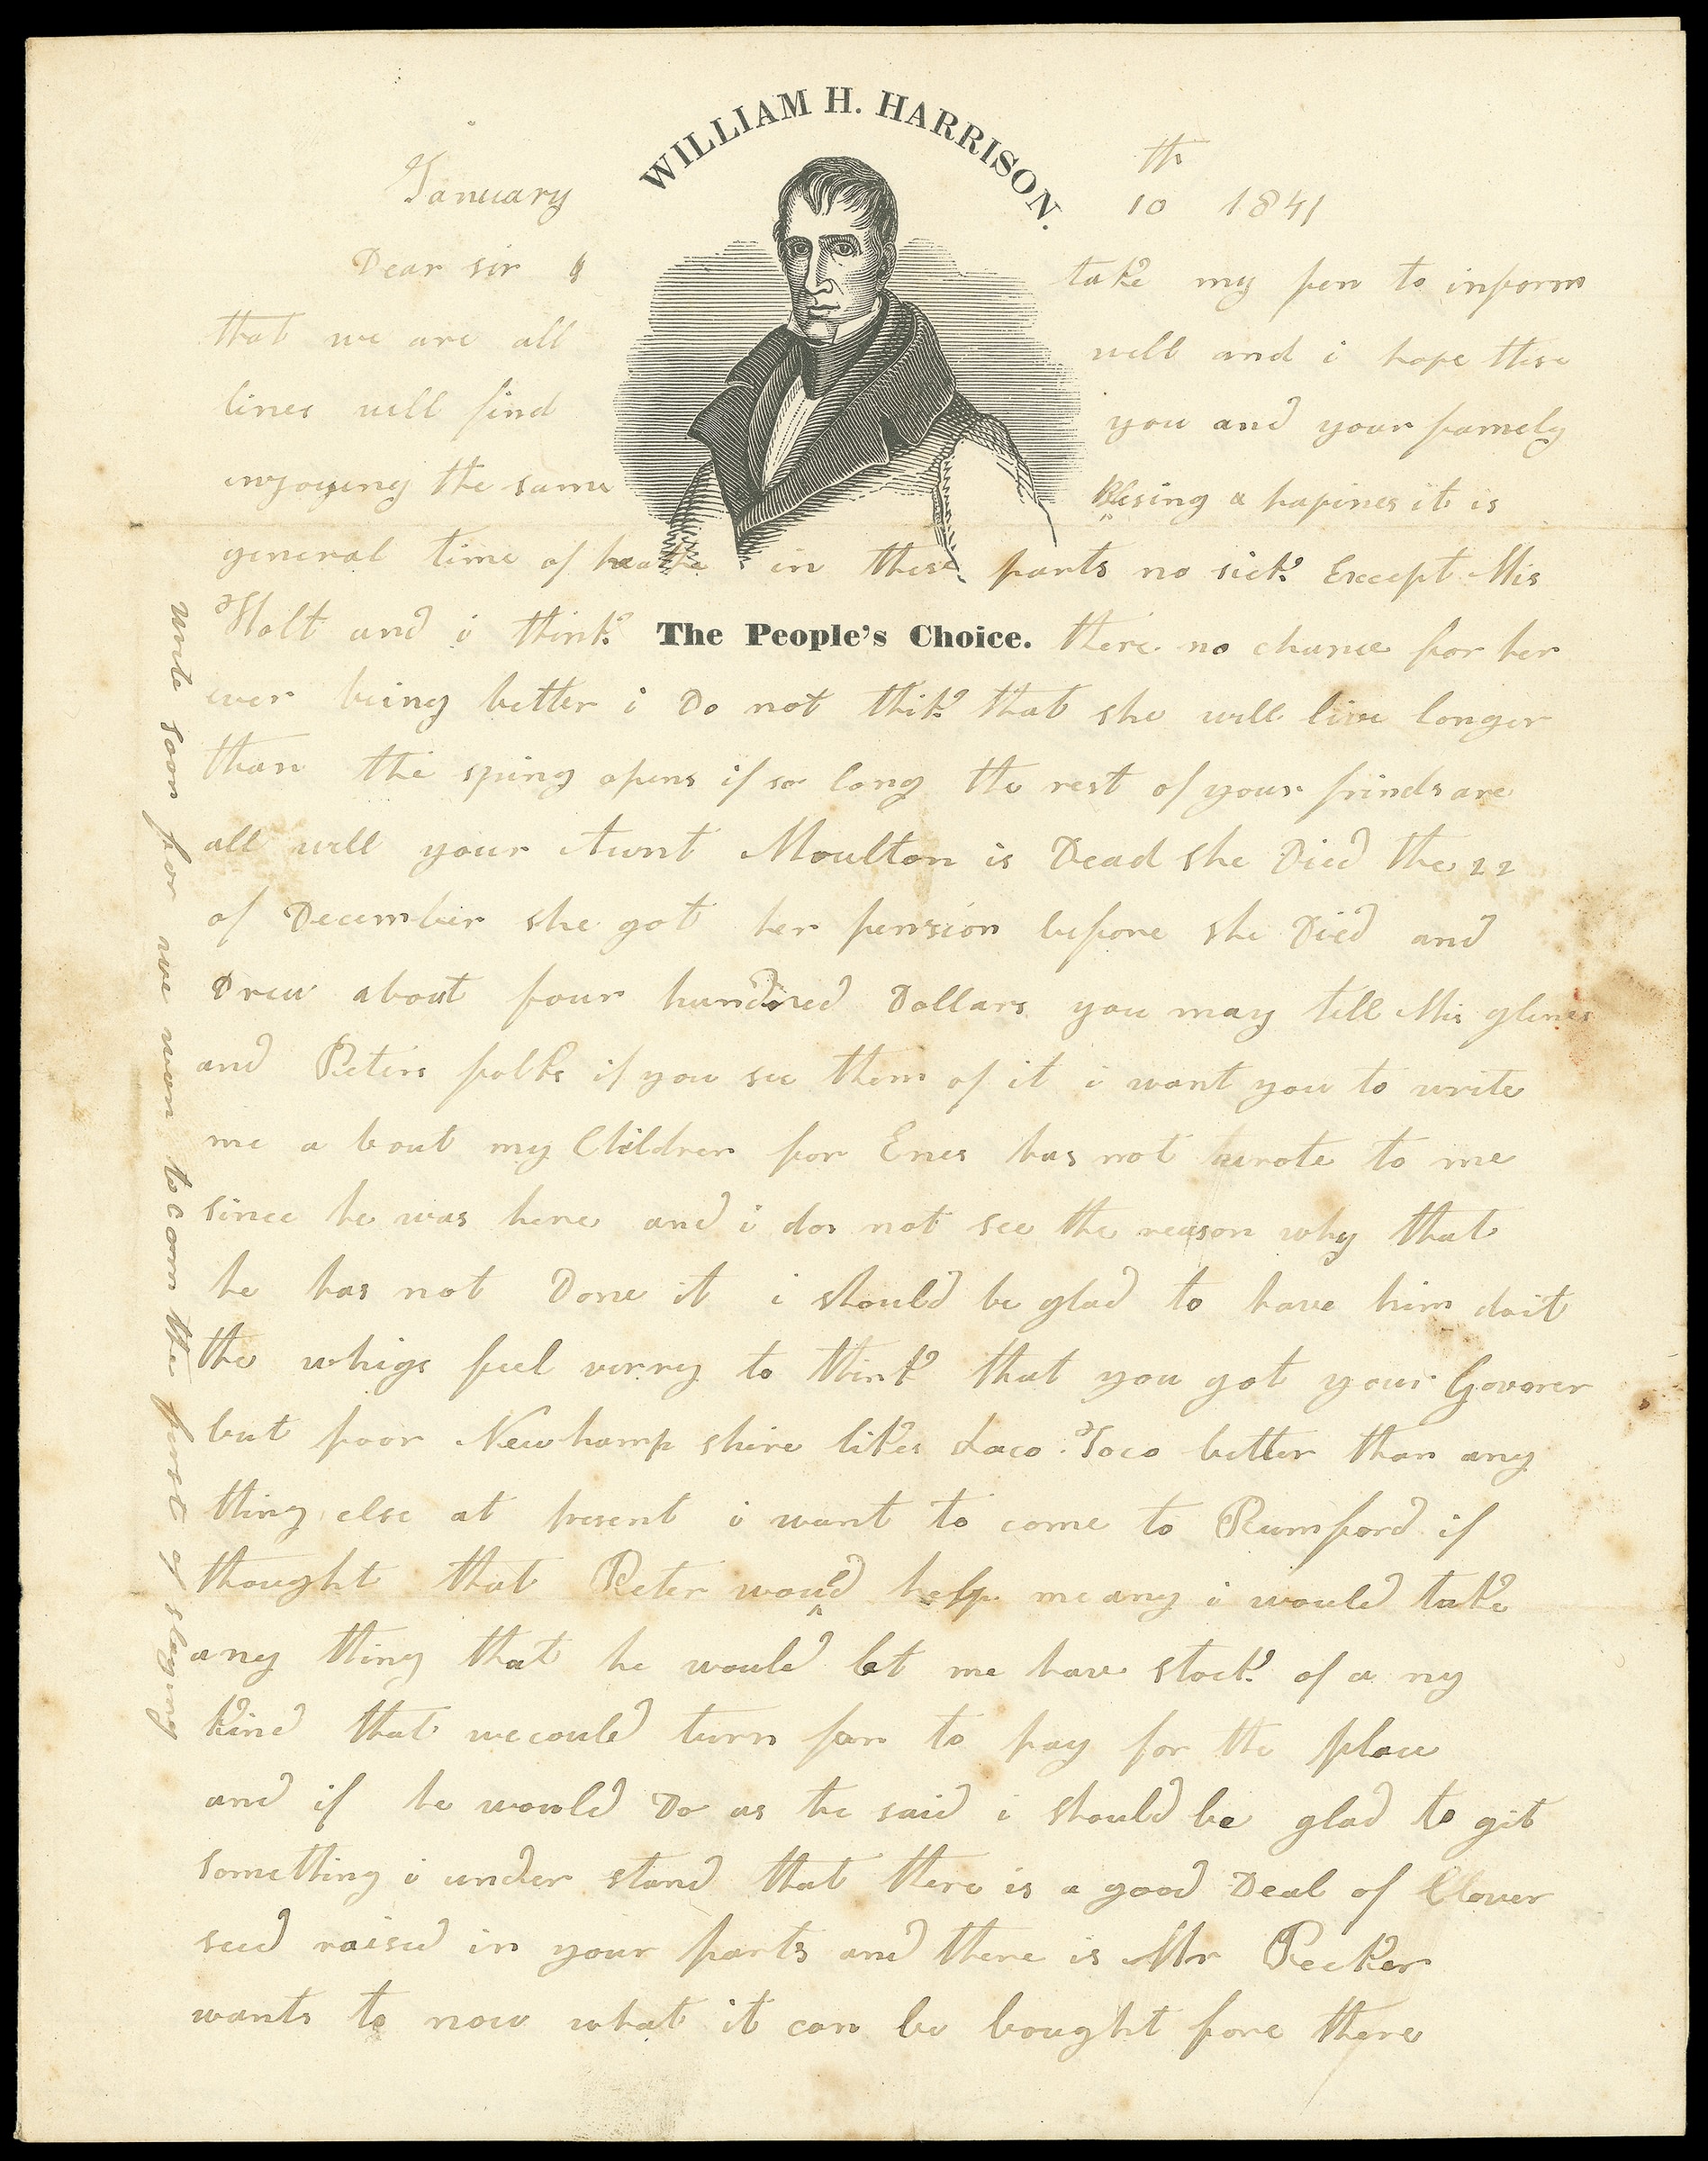 WILLIAM H. HARRISON.
January 10th 1841
Dear sir I take my pen to inform
that we are all well and i hope these
lines will find you and your famely
injoyeng the same blesing & hapines it is
general time of healthe in these parts no sick Except Mis
Holt and i think there no chance for her
The People's Choice.
ever being better i Do not thik that she will live longer
than the sping opens if so long the rest of your frinds are
all well your Aunt Moulton is Dead she Died the 22
of December she got her pension before she Died and
Drew about four hundred Dollars you may till Mis glines
and Peters folks if you see them of it i want you to write
me a bout my Children for Enes has not wrote to me
since he was here and i dos not see the reason why that
he has not Done it i should be glad to have him doit
the whigs feel verry to think that you got your Govorer
but poor Newhamp shire likes Loco Foco better than any
thing else at present i want to come to Rumford if
thought that Peter would help me any i would take
any thing that he would let me have stock of a ny
kind that wecould turn for to pay for the place
and if he would Do as he said i should be glad to git
something i under stand that there is a good Deal of Clover
seed raised in your parts and there is Mr Pecker
wants to now what it can be bought fore there
write soon for we won to com the first of slaying